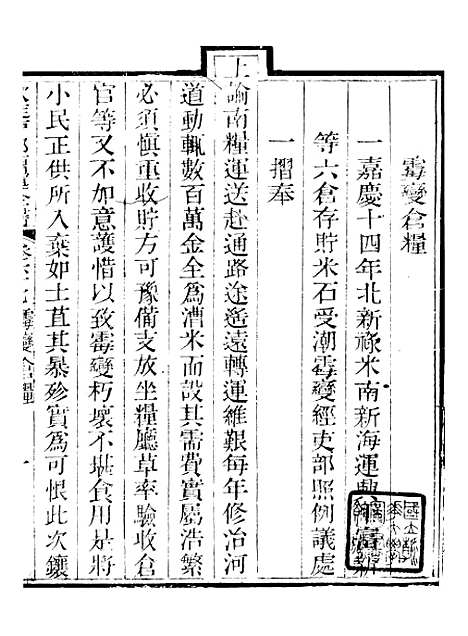 霉變倉糧
一嘉慶十四年北新祿米南新海運
等六倉存貯米石受潮霉變經吏部照例議處
一摺奉
上諭南糧運送赴通路途遙遠轉運維艱每年修冶河
道動輒數百萬金全爲漕米而設其需費實屬浩繁
必須愼重收貯方可豫備支放坐糧廳草率驗收倉
官等又不如意護惜以致霉變朽壞不堪食用是將
小民正供所入棄如土苴其暴殄實爲可恨此次鑲
霉變倉糧